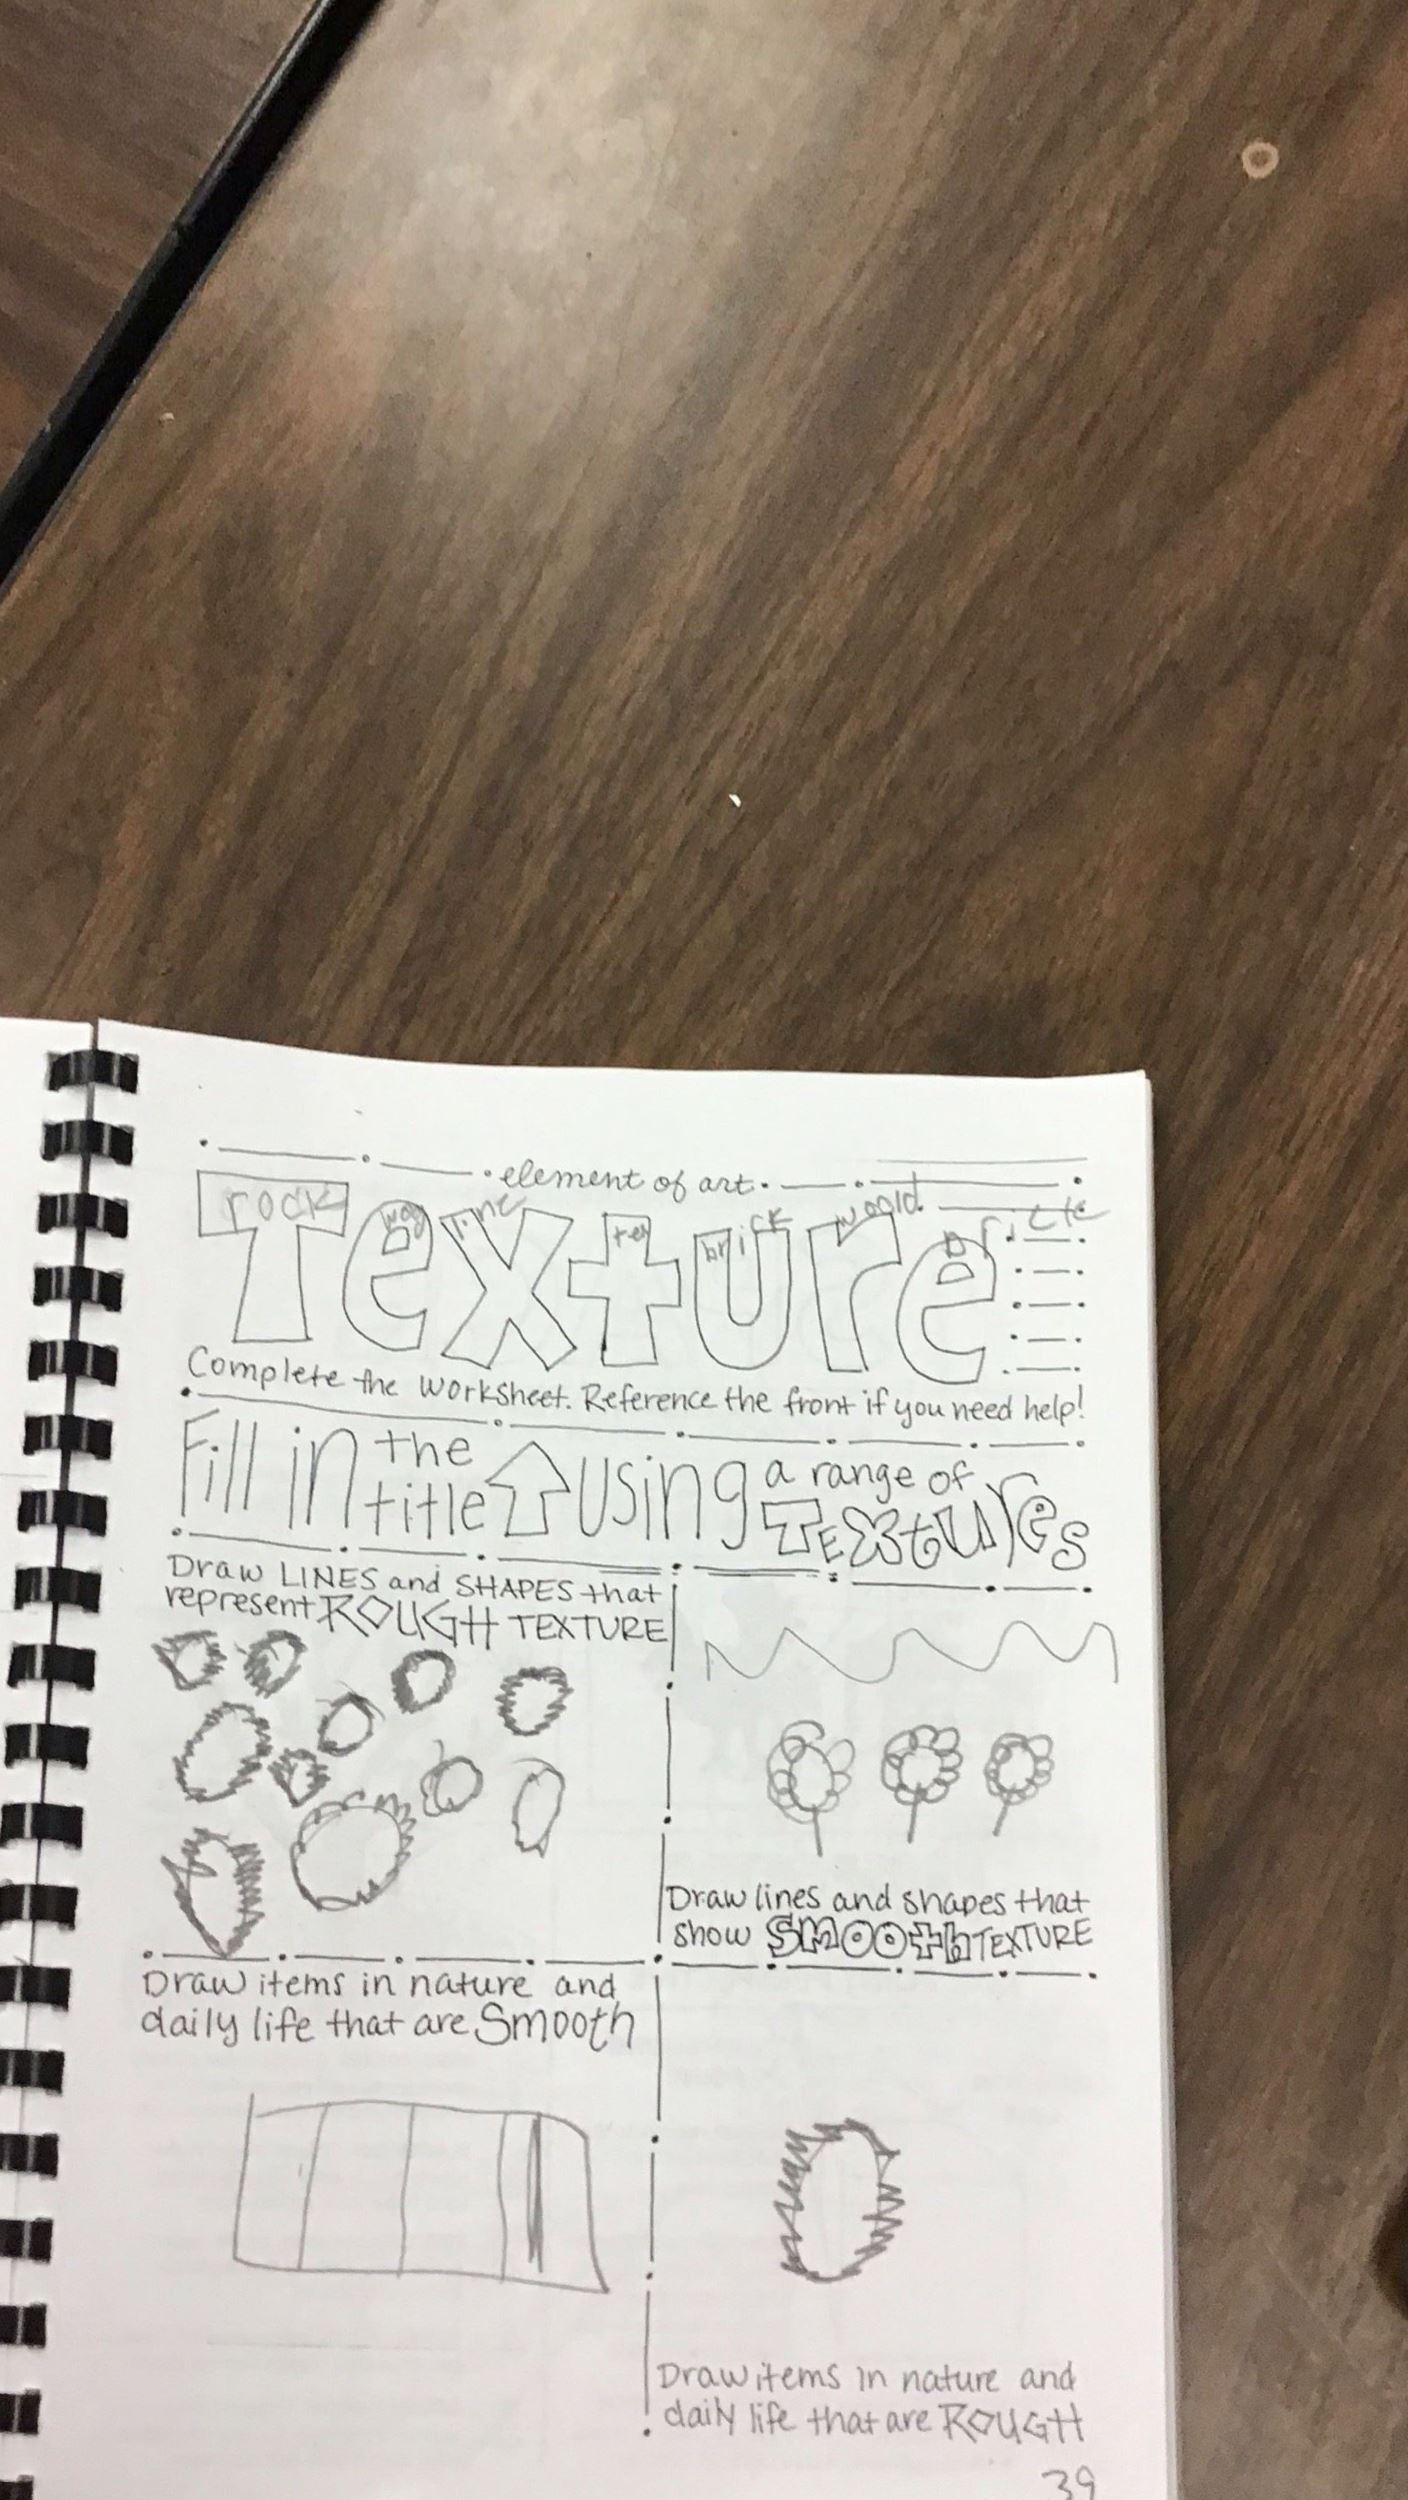 element of art
rock
Texture
brick
Complete the worksheet. Reference the front if you need help!
Fill in the title using a range of Textures
Draw LINES and SHAPES that
represent ROUGH TEXTURE
Draw lines and shapes that
show SMOOTH TEXTURE
Draw items in nature and
daily life that are Smooth
Draw items in nature and
daily life that are ROUGH
39